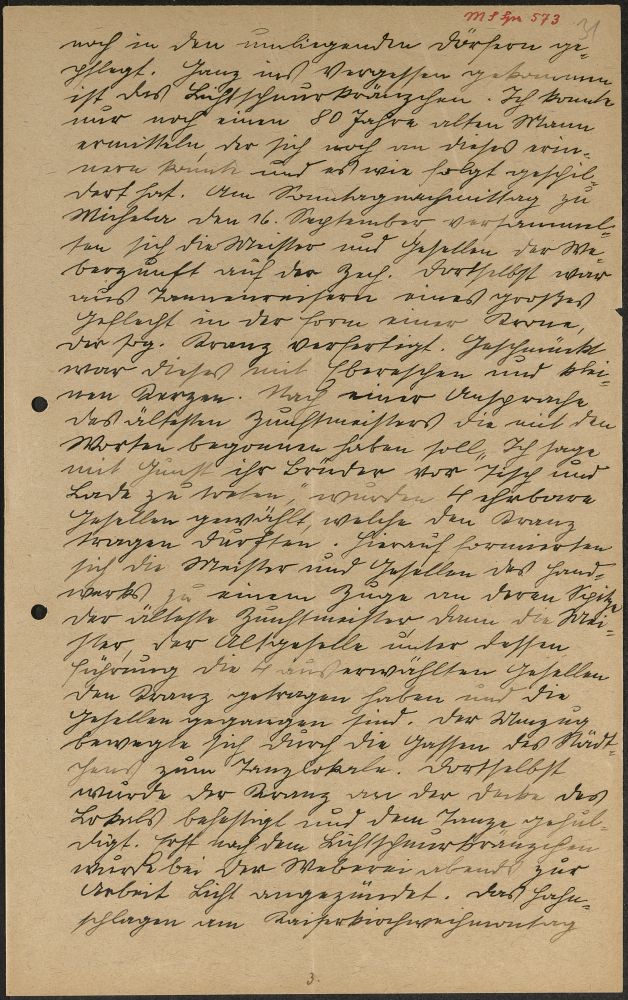 MSgn 573
31
noch in den umliegenden Dörfern ge-
pflegt. Ganz ins Vergessen gekommen
ist das Lichtschnurkränzchen. Ich konnte
nur noch einen 80 Jahre alten Mann
ermitteln, der sich noch an dieses erin-
nern konnte und es wie folgt geschil-
dert hat. Am Sonntagnachmittag zu
Michela den 16. September versammel-
ten sich die Meister und Gesellen der We-
berzunft auf der Zech. Dortselbst war
aus Tannenreisern eines großes
Geflecht in der Form einer Krone,
der sog. Kranz verfertigt. Geschmückt
war dieses mit Ebereschen und klei-
nen Kerzen. Nach einer Ansprache
des ältesten Zunftmeisters die mit den
Worten begonnen haben soll "Ich sage
mit Gunst ihr Brüder vor Tisch und
Lade zu treten," wurden 4 ehrbare
Gesellen gewählt welche den Kranz
tragen durften. Hierauf formierten
sich die Meister und Gesellen des Hand-
werks zu einem Zuge an deren Spitze
der älteste Zunftmeister dann die Mei-
ster, der Altgeselle unter dessen
Führung die 4 auserwählten Gesellen
den Kranz getragen haben und die
Gesellen gegangen sind. Der Umzug
bewegte sich durch die Gassen des Städt-
chens zum Tanzlokale. Dortselbst
wurde der Kranz an der Decke des
Lokals befestigt und dem Tanze gehul-
digt. Erst nach dem Lichtschnurkränzchen
wurde bei der Weberei abends zur
Arbeit Licht angezündet. Das Hahn-
schlagen am Kaiserkirchweihmontag
3.